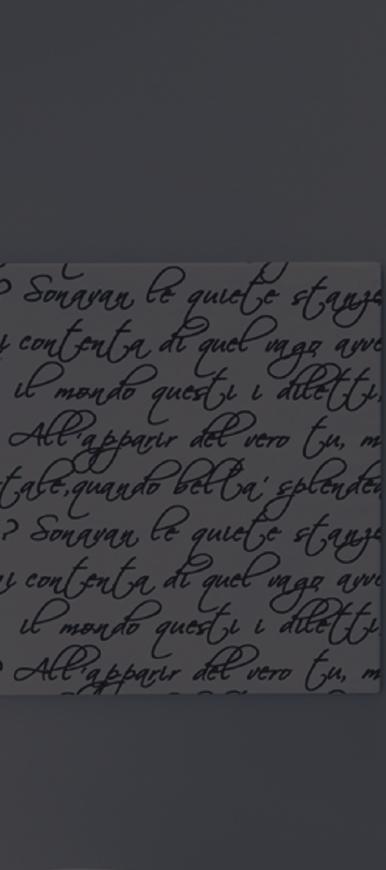 ? Sonavan le quiete stanze
i contenta di quel vago avve
il mondo questi i diletti,
All'apparir del vero tu, m
tale, quando belta' splendea
? Sonavan le quiete stanze
i contenta di quel vago avve
il mondo questi i diletti
All'apparir del vero tu, m